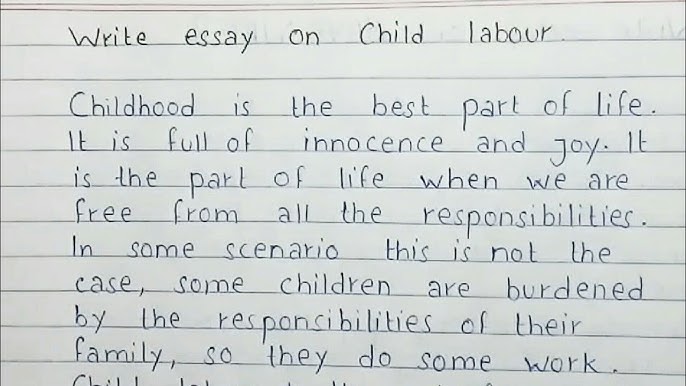 Write essay on Child labour.
Childhood is the best part of life.
It is full of innocence and joy. It
is the part of life when we are
free from all the responsibilities.
In some scenario this is not the
case, some children are burdened
by the responsibilities of their
family, so they do some work.